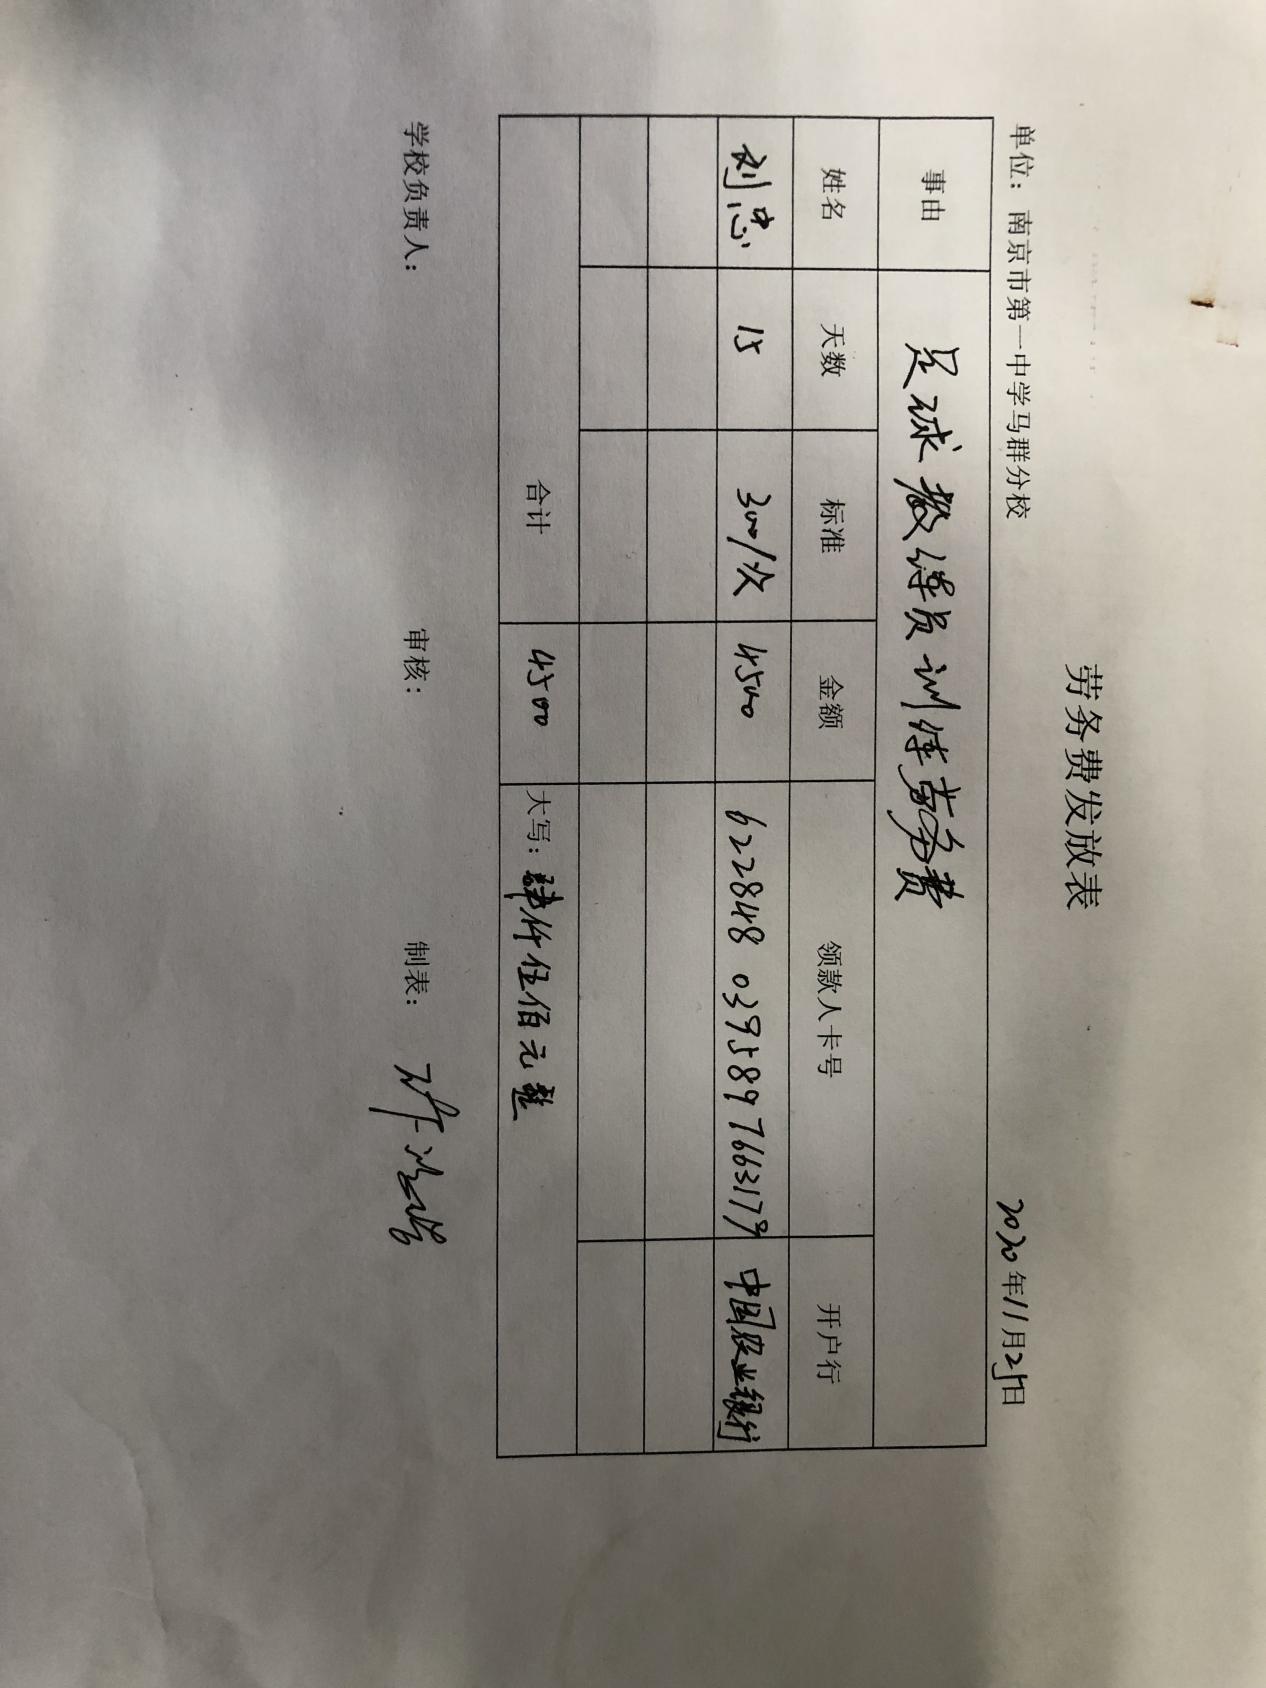 劳务费发放表
单位：南京市第一中学马群分校 2020年11月25日
事由 足球教练员训练劳务费
姓名 天数 标准 金额 领款人卡号 开户行
刘忠 15 300/次 4500 622848 0395897663179 中国农业银行
合计 4500 大写：肆仟伍佰元整
学校负责人： 审核： 制表：